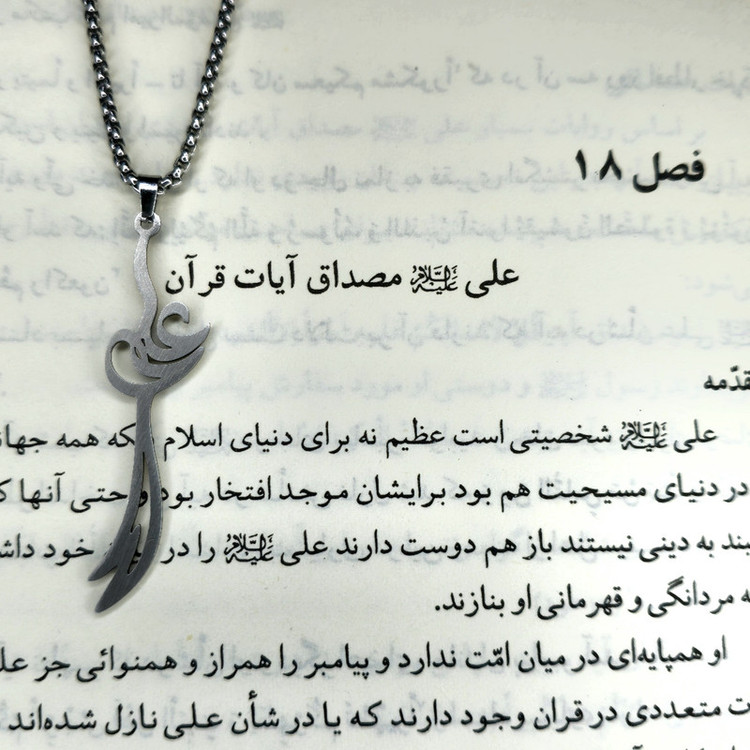 فصل ۱۸
علی علیه السلام مصداق آیات قرآن
مقدّمه
علی علیه السلام شخصیتی است عظیم نه برای دنیای اسلام بلکه همه
در دنیای مسیحیت هم بود برایشان موجد افتخار بود و حتی آنها
به دینی نیستند باز هم دوست دارند علی علیه السلام را در خود
مردانگی و قهرمانی او بنازند.
او همپایه‌ای در میان امّت ندارد و پیامبر را همراز و همنوائی جز
متعددی در قران وجود دارند که یا در شأن علی نازل شده‌اند